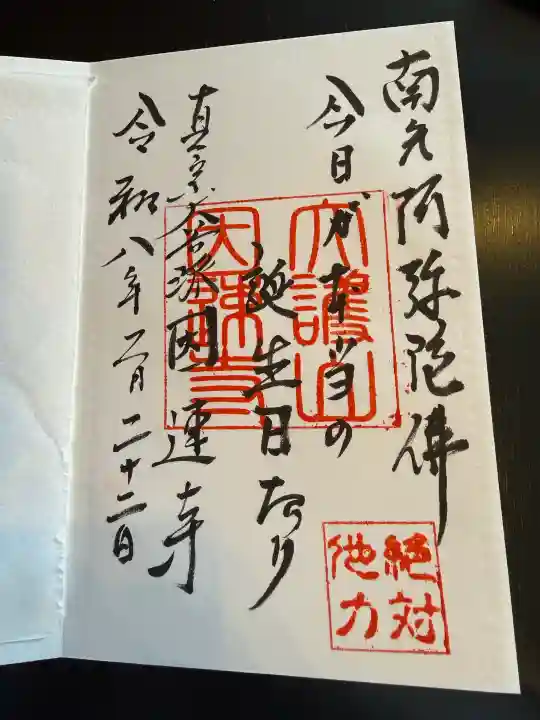 南无阿弥陀佛
今日が本当の
誕生日なり
真宗大谷派因速寺
令和八年二月二十二日
大護山
因速寺
絶対
他力